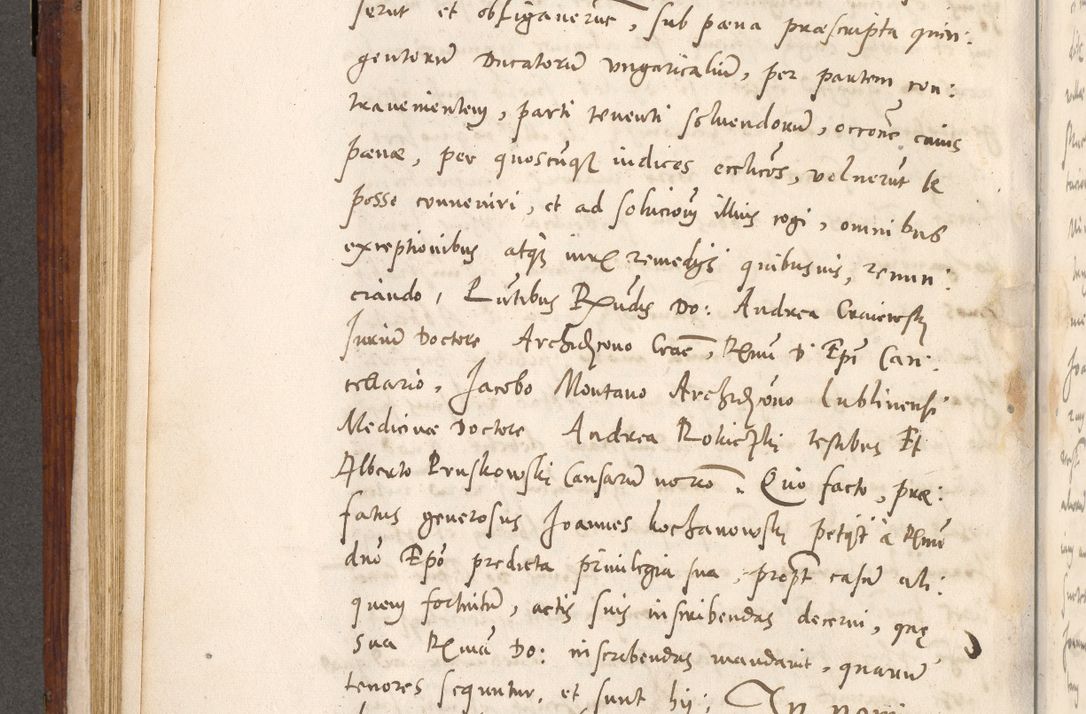 serut et obliganerut, sub pæna præscripta quin:
gentorũ Ducatorũ vngaricaliũ, per partem con:
trauenientem, parti tenenti soluendorũ, occonẽ cuius
pænæ, per quoscũqz iudices eccħicos, voluerũt se
posse conueniri, et ad solucionẽ illius cogi, omnibus
exceptionibus atqz iuris remedijs quibusuis, renun:
ciando, Pñtibus Rñdis Do: Andrea Craiewsky
Juriũ Doctore Archidiacono Crac̃, Rñmi D Epĩ Can:
cellario, Jacobo Montano Archidiacono Lublinensi
Medicinæ Doctore Andrea Rokiczky testibus Et
Alberto Pruskowski Causarũ notrõ. Quo facto, præ:
fatus generosus Joannes kochanowsky petijt à Rñmo
dño Epõ predicta priuilegia sua, propt casũ ali:
quem fortuitũ, actis suis inscribendas decerni, quę
sua Rñma Do: inscribendas mandauit, quarũ
tenores sequntur, et sunt hij: In nomi